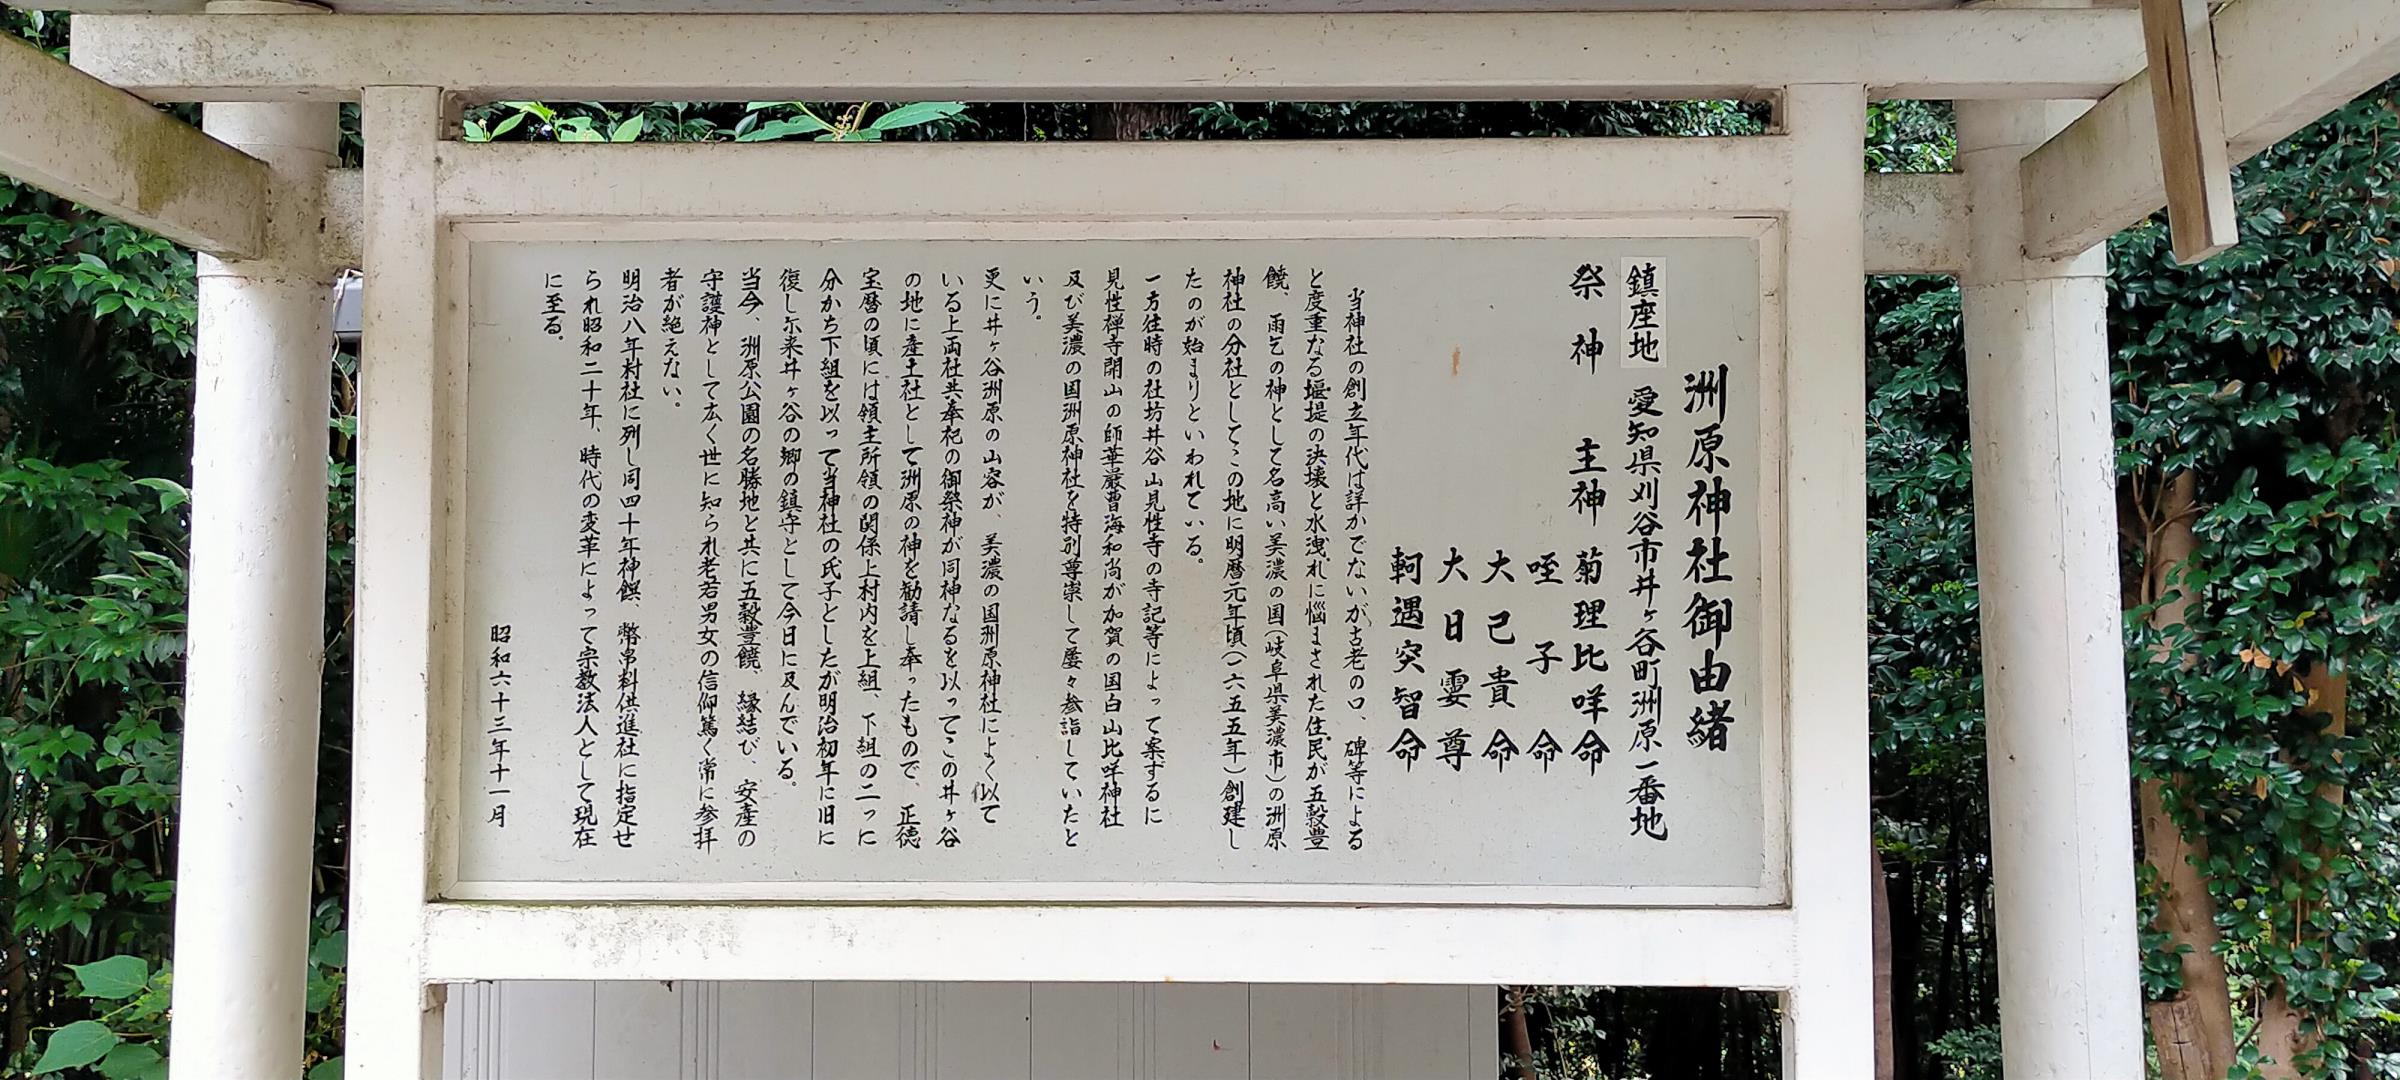 洲原神社御由緒
鎮座地 愛知県刈谷市井ヶ谷町洲原一番地
祭神 主神 菊理比咩命
咥子命
大己貴命
大日孁尊
軻遇突智命
当神社の創立年代は詳かでないが古老の口、碑等による
と度重なる堰堤の決壊と水洩れに悩まされた住民が五穀豊
饒、雨乞の神として名高い美濃の国(岐阜県美濃市)の洲原
神社の分社としてこの地に明暦元年頃(一六五五年)創建し
たのが始まりといわれている。
一方往時の社坊井谷山見性寺の寺記等によって案ずるに
見性禅寺開山の師華厳曹海和尚が加賀の国白山比咩神社
及び美濃の国洲原神社を特別尊崇して屡々参詣していたと
いう。
更に井ヶ谷洲原の山容が、美濃の国洲原神社によく似て
いる上両社共奉祀の御祭神が同神なるを以ってこの井ヶ谷
の地に産土社として洲原の神を勧請し奉ったもので、正徳
宝暦の頃には領主所領の関係上村内を上組、下組の二つに
分かち下組を以って当神社の氏子としたが明治初年に旧に
復し尓来井ヶ谷の郷の鎮守として今日に及んでいる。
当今、洲原公園の名勝地と共に五穀豊饒、縁結び、安産の
守護神として広く世に知られ老若男女の信仰篤く常に参拝
者が絶えない。
明治八年村社に列し同四十年神饌、幣帛料供進社に指定せ
られ昭和二十年、時代の変革によって宗教法人として現在
に至る。
昭和六十三年十一月